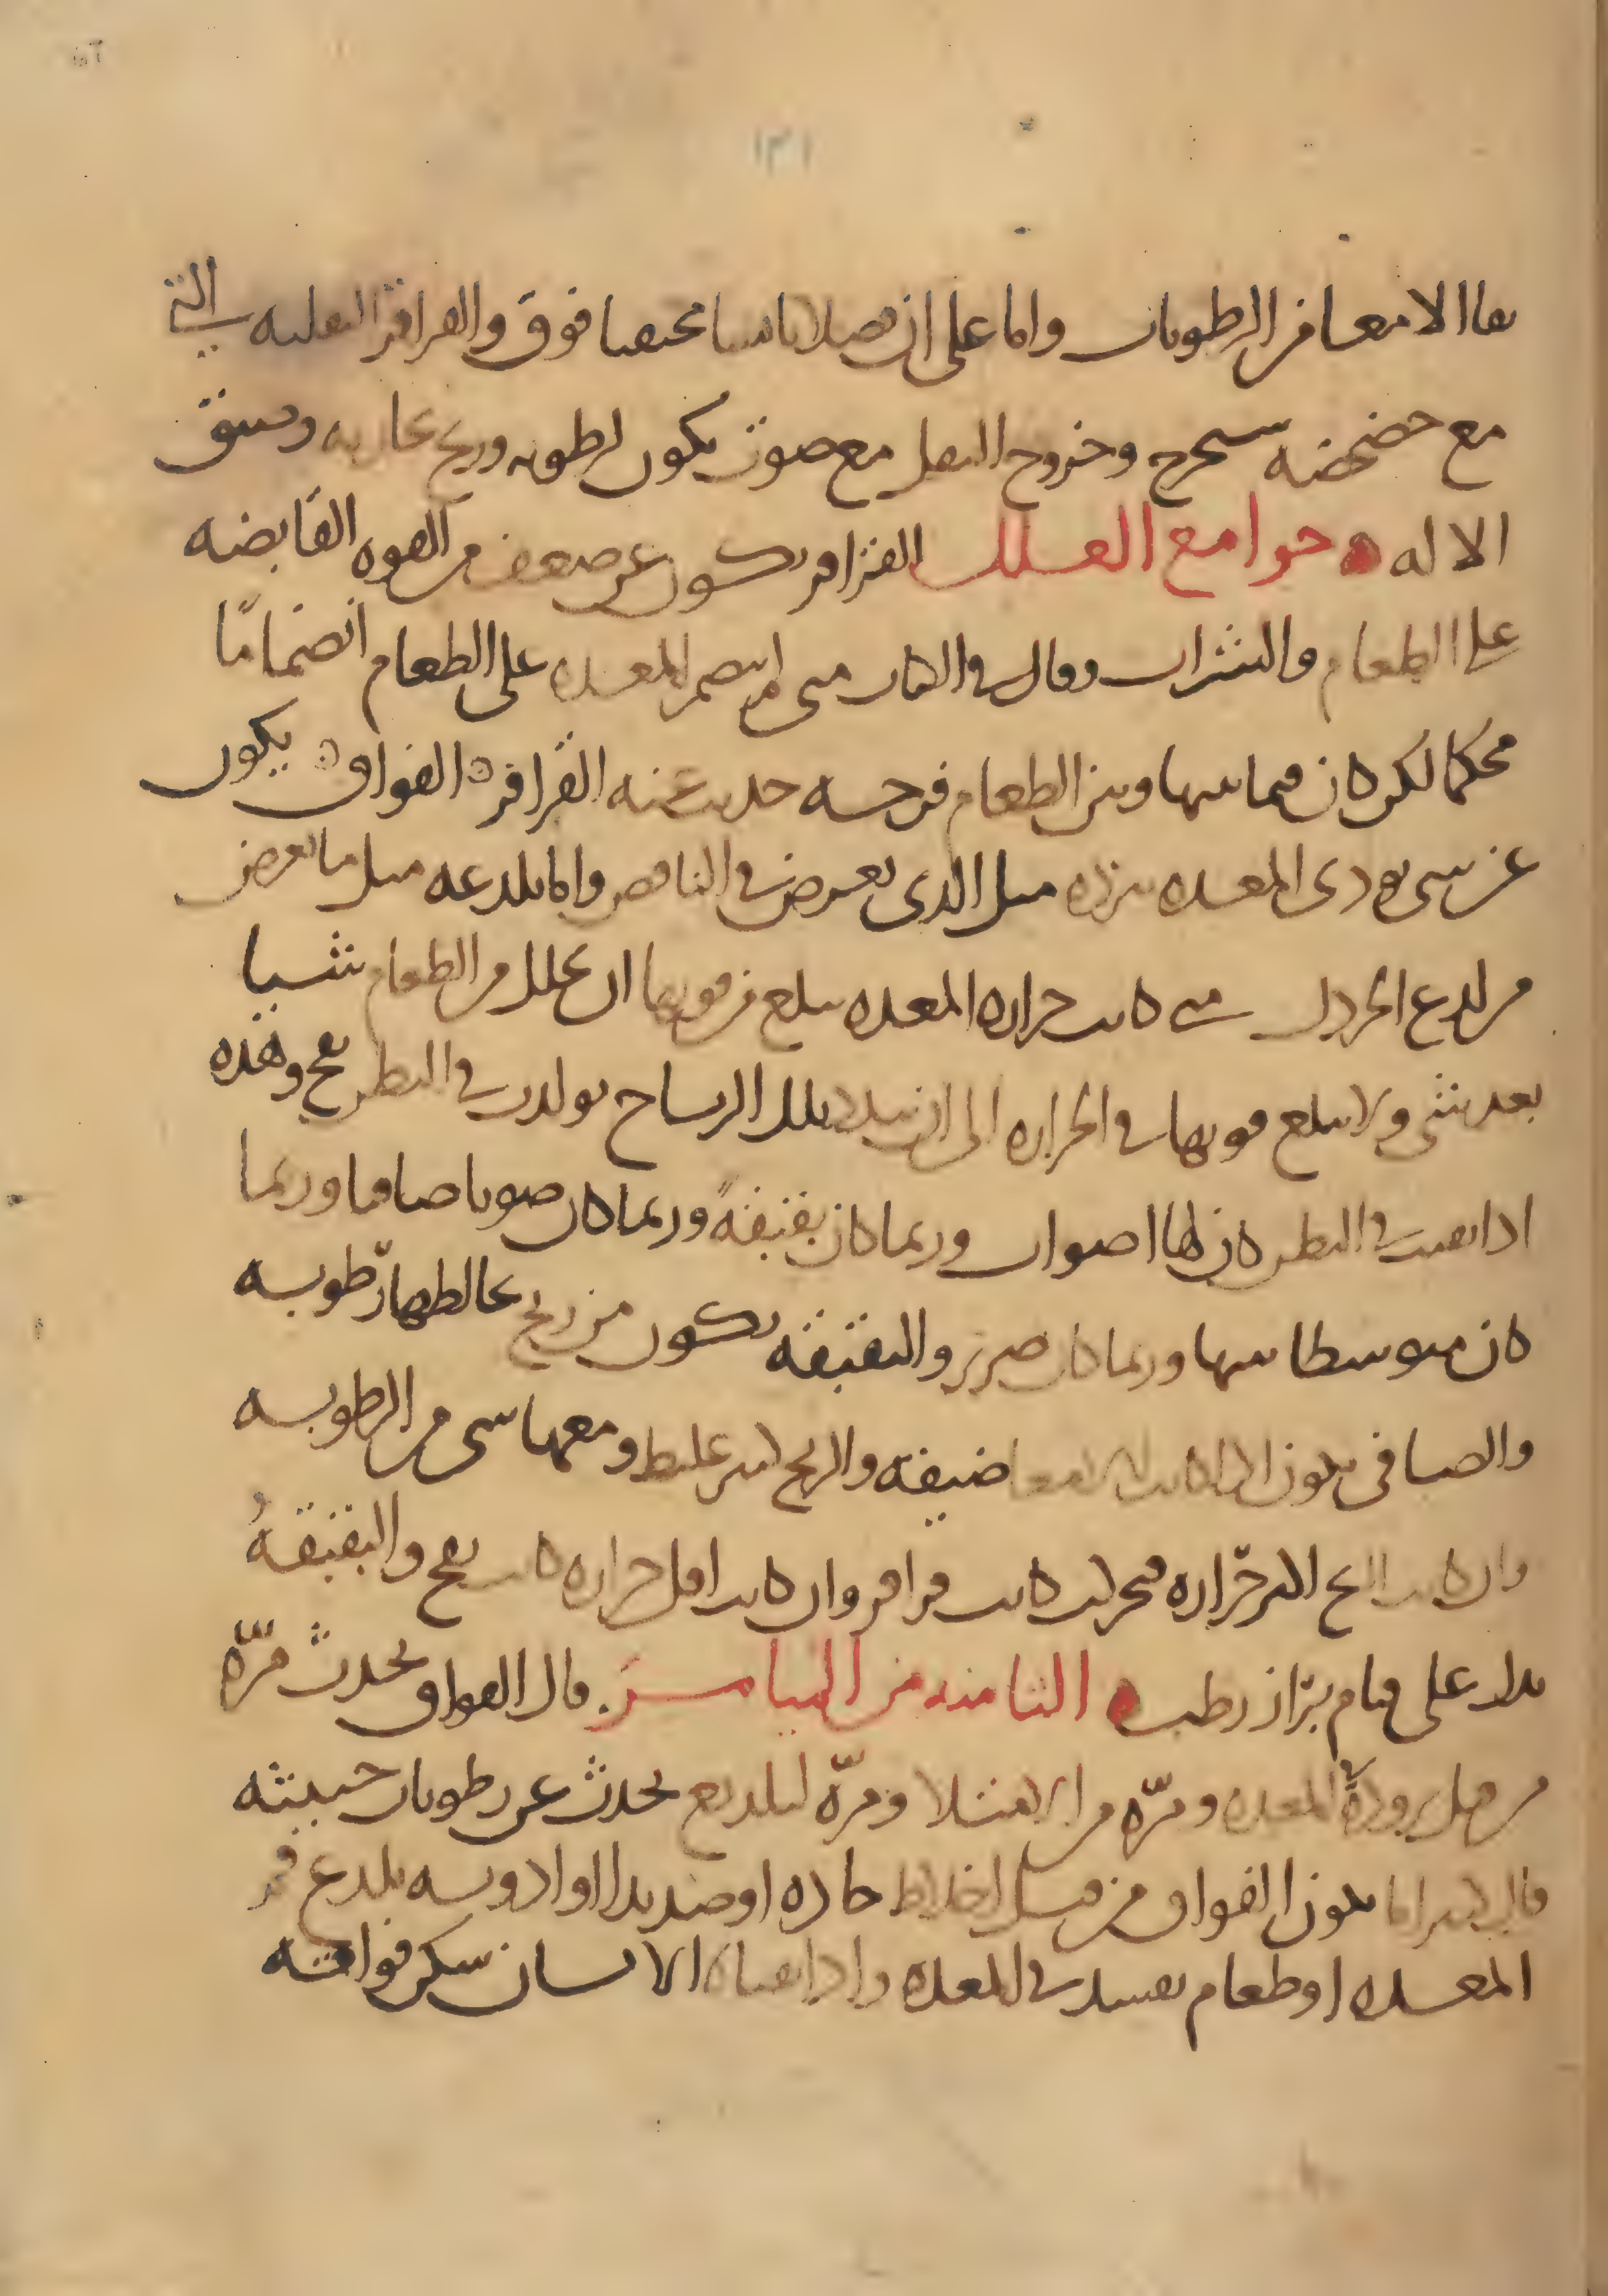 ١٣١
نقا الامعا من الرطوبات واما على ان فضلا يابسا محتبسا فوق والقراقر الثقليه التي
مع خضخضه ستخرج وخروج الثفل مع صوت يكون لرطوبه وريح بخاريه وضيق
الاله جوامع العلل القراقر يكون عن ضعف من القوه القابضه
على الطعام والشراب وقال في الثالث متى لم ينضم المعده على الطعام انضماما
محكما لكن كان فيما بينها وبين الطعام فرجه حدثت عنه القراقر الفواق يكون
عن شي يوذي المعده ببرده مثل الذي يعرض في النافض واما بلذعه مثل ما يعرض
من لذع الخردل متى كانت حراره المعده يبلغ من قوتها ان يحلل من الطعام شيا
بعد شي ولا يبلغ قوتها في الحراره الى ان تلك الرياح تولدت في البطن نفخ وهذه
اذا بقيت في البطن كان لها اصوات وربما كان بقبقة وربما كان صوتا صافيا وربما
كان متوسطا بينها وربما كان صرير والبقبقه يكون من ريح يخالطها رطوبه
والصافي يكون اذا كانت الامعا ضيقه والريح ليس غليظ ومعها شي من الرطوبه
وان كانت الريح اكثر حراره فتحركت كانت قراقر وان كانت اقل حراره كانت نفخ والبقبقه
يدل على قيام براز رطب الثامنه من الميامر قال الفواق يحدث مره
من قبل برودة المعده ومره من الامتلا ومره لتلذيع يحدث عن رطوبات خبيثه
قال انما يكون الفواق من قبل اخلاط حاده او صديد او ادويه يلذع فم
المعده او طعام يفسد في المعده واذا تقياه الانسان سكن فواقه